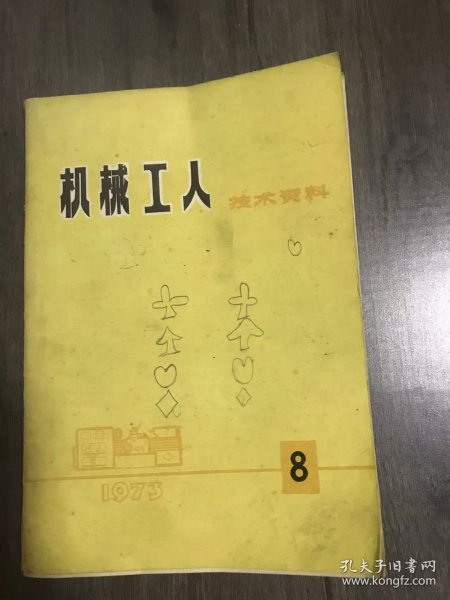 机械工人 技术资料
1973
8
孔夫子旧书网
www.kongfz.com